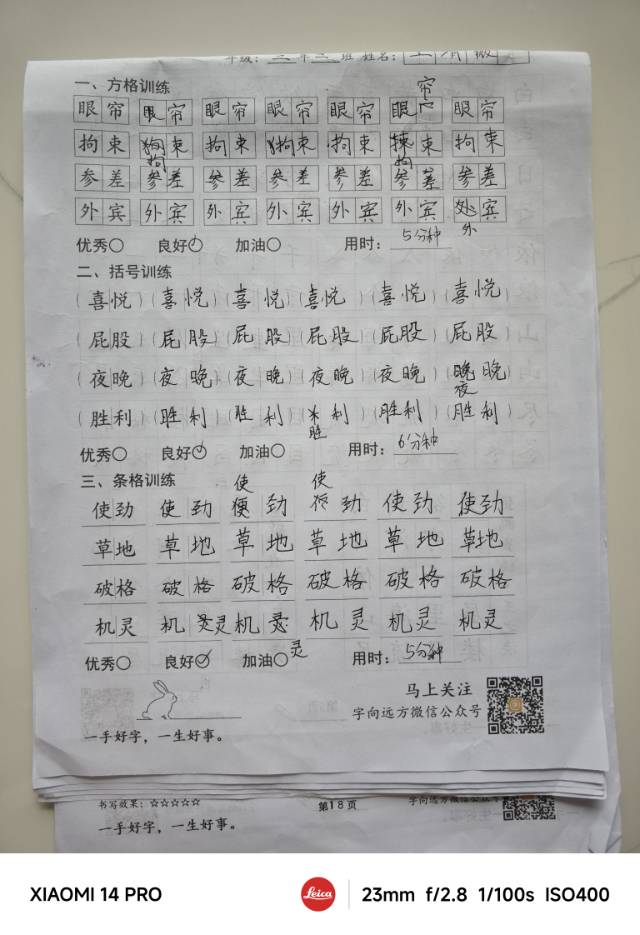 一、方格训练
帘
眼帘 眼帘 眼帘 眼帘 眼帘 眼 眼帘
拘束 束 拘束 拘束 拘束 束 拘束
拘 拘
参差 参差 参差 参差 参差 参差 参差
外宾 外宾 外宾 外宾 外宾 外宾 处宾
外
优秀○ 良好○ 加油○ 用时: 5分钟
二、括号训练
(喜悦) (喜悦) (喜悦) (喜悦) (喜悦) (喜悦)
(屁股) (屁股) (屁股) (屁股) (屁股) (屁股)
(夜晚) (夜晚) (夜晚) (夜晚) (夜晚) (晚晚)
夜
(胜利) (胜利) (胜利) (利) (胜利) (胜利)
胜
优秀○ 良好○ 加油○ 用时: 6分钟
三、条格训练
使 使
使劲 使劲 劲 劲 使劲 使劲
草地 草地 草地 草地 草地 草地
破格 破格 破格 破格 破格 破格
机灵 机灵 机 机灵 机灵 机灵
灵
优秀○ 良好○ 加油○ 用时: 5分钟
马上关注
字向远方微信公众号
一手好字，一生好事。
书写效果: ☆☆☆☆☆ 第18页 字向远方微信公众
一手好字，一生好事。
XIAOMI 14 PRO Leica 23mm f/2.8 1/100s ISO400